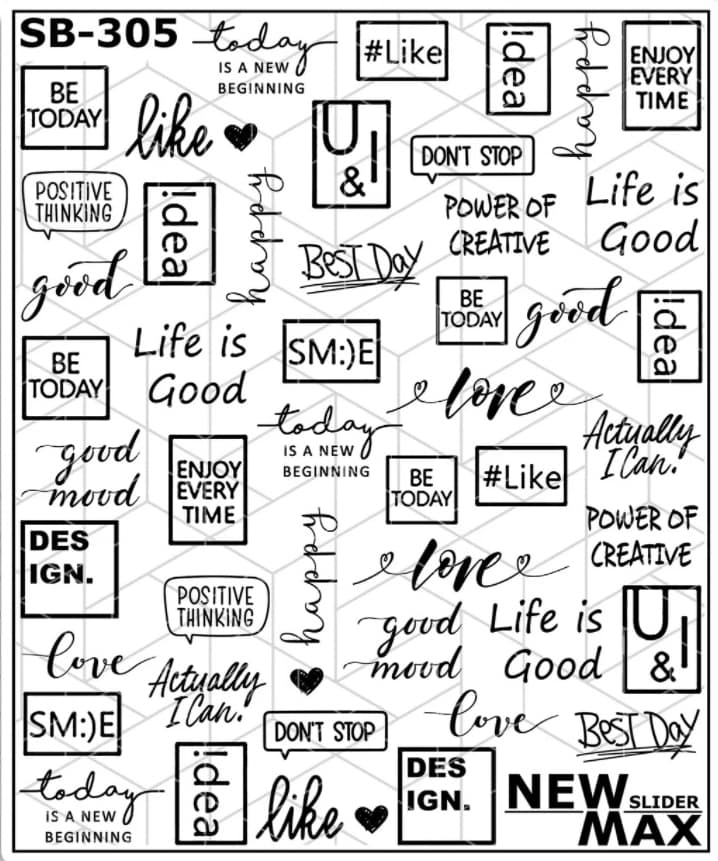 SB-305
today
IS A NEW
BEGINNING
#Like
!dea
happy
ENJOY
EVERY
TIME
BE
TODAY
like
U
I
&
DON'T STOP
POSITIVE
THINKING
!dea
happy
POWER OF
CREATIVE
Life is
Good
good
BEST DAY
BE
TODAY
good
!dea
BE
TODAY
Life is
Good
SM:)E
love
today
IS A NEW
BEGINNING
Actually
I Can.
good
mood
ENJOY
EVERY
TIME
BE
TODAY
#Like
POWER OF
CREATIVE
DES
IGN.
happy
love
POSITIVE
THINKING
good
mood
Life is
Good
U
I
&
love
Actually
I Can.
SM:)E
DON'T STOP
love
BEST DAY
today
IS A NEW
BEGINNING
!dea
like
DES
IGN.
NEW SLIDER
MAX